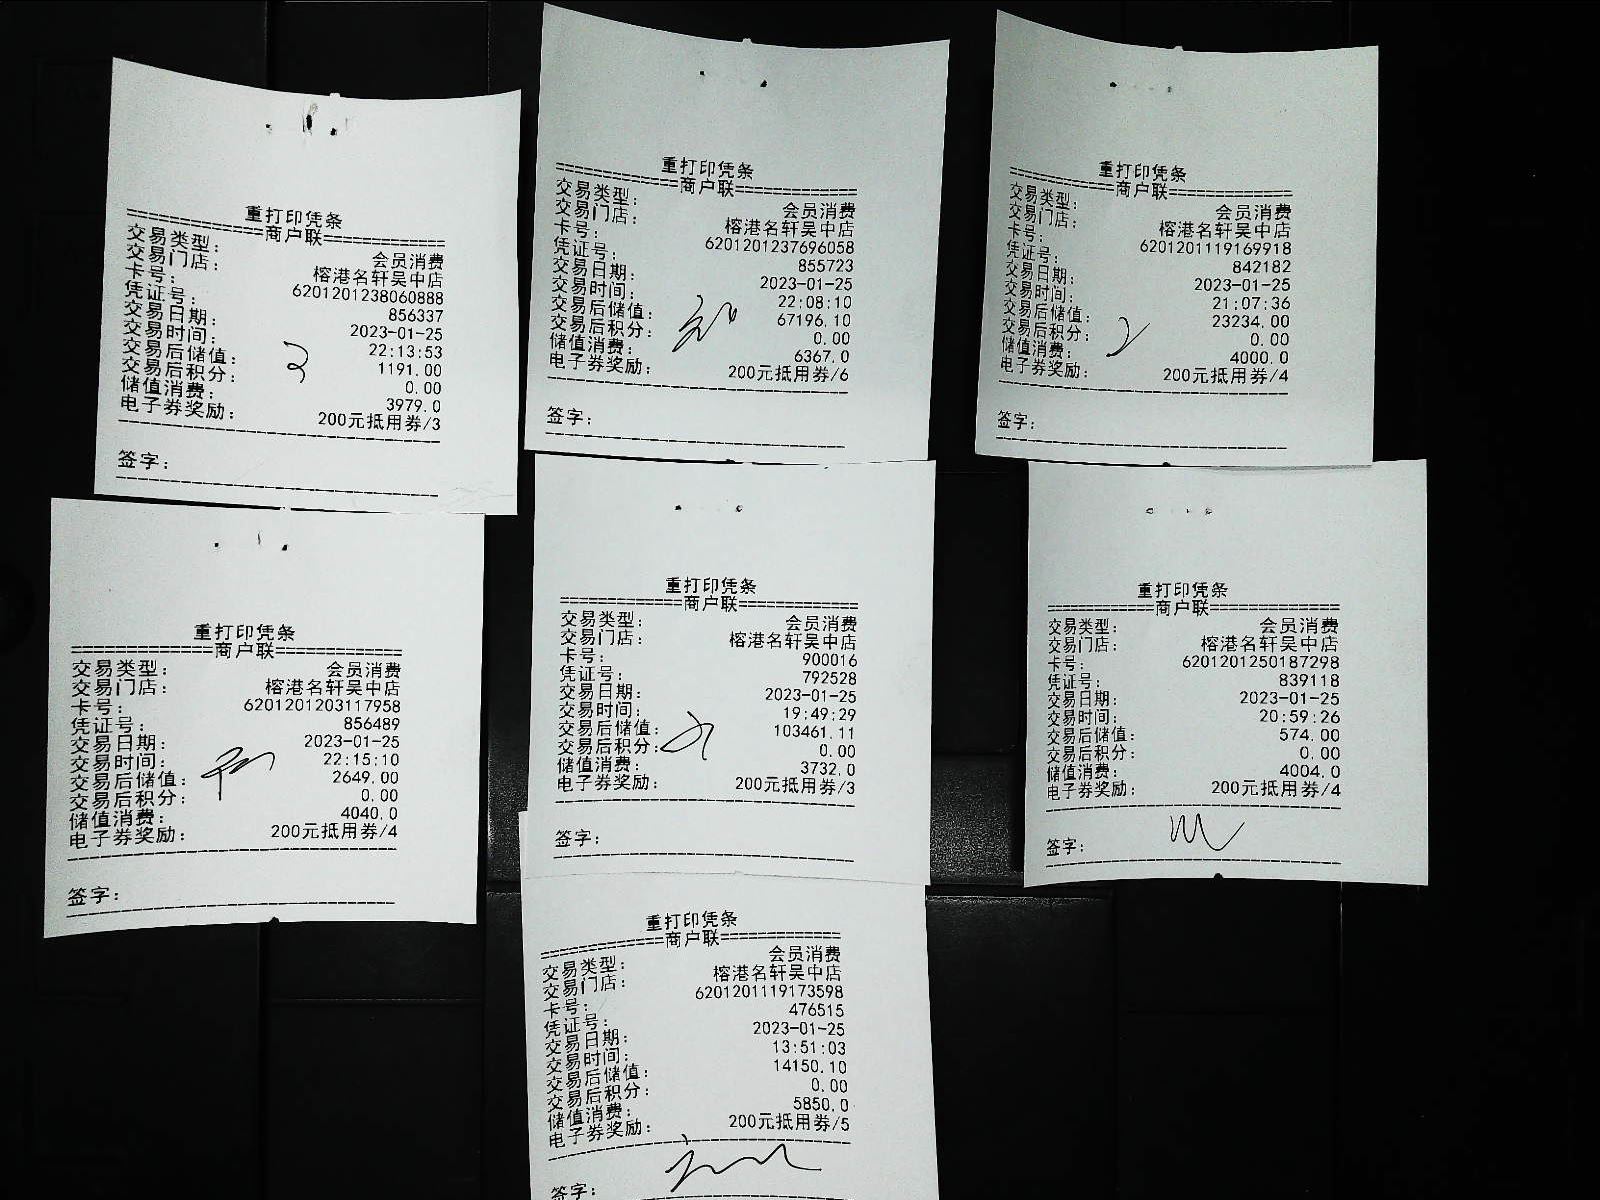 重打印凭条
==============商户联==============
交易类型: 会员消费
交易门店: 榕港名轩吴中店
卡号: 6201201238060888
凭证号: 856337
交易日期: 2023-01-25
交易时间: 22:13:53
交易后储值: 1191.00
交易后积分: 0.00
储值消费: 3979.0
电子券奖励: 200元抵用券/3
签字:
重打印凭条
==============商户联==============
交易类型: 会员消费
交易门店: 榕港名轩吴中店
卡号: 6201201237696058
凭证号: 855723
交易日期: 2023-01-25
交易时间: 22:08:10
交易后储值: 67196.10
交易后积分: 0.00
储值消费: 6367.0
电子券奖励: 200元抵用券/6
签字:
重打印凭条
==============商户联==============
交易类型: 会员消费
交易门店: 榕港名轩吴中店
卡号: 6201201119169918
凭证号: 842182
交易日期: 2023-01-25
交易时间: 21:07:36
交易后储值: 23234.00
交易后积分: 0.00
储值消费: 4000.0
电子券奖励: 200元抵用券/4
签字:
重打印凭条
==============商户联==============
交易类型: 会员消费
交易门店: 榕港名轩吴中店
卡号: 6201201203117958
凭证号: 856489
交易日期: 2023-01-25
交易时间: 22:15:10
交易后储值: 2649.00
交易后积分: 0.00
储值消费: 4040.0
电子券奖励: 200元抵用券/4
签字:
重打印凭条
==============商户联==============
交易类型: 会员消费
交易门店: 榕港名轩吴中店
卡号: 900016
凭证号: 792528
交易日期: 2023-01-25
交易时间: 19:49:29
交易后储值: 103461.11
交易后积分: 0.00
储值消费: 3732.0
电子券奖励: 200元抵用券/3
签字:
重打印凭条
==============商户联==============
交易类型: 会员消费
交易门店: 榕港名轩吴中店
卡号: 6201201250187298
凭证号: 839118
交易日期: 2023-01-25
交易时间: 20:59:26
交易后储值: 574.00
交易后积分: 0.00
储值消费: 4004.0
电子券奖励: 200元抵用券/4
签字:
重打印凭条
==============商户联==============
交易类型: 会员消费
交易门店: 榕港名轩吴中店
卡号: 6201201119173598
凭证号: 476515
交易日期: 2023-01-25
交易时间: 13:51:03
交易后储值: 14150.10
交易后积分: 0.00
储值消费: 5850.0
电子券奖励: 200元抵用券/5
签字: